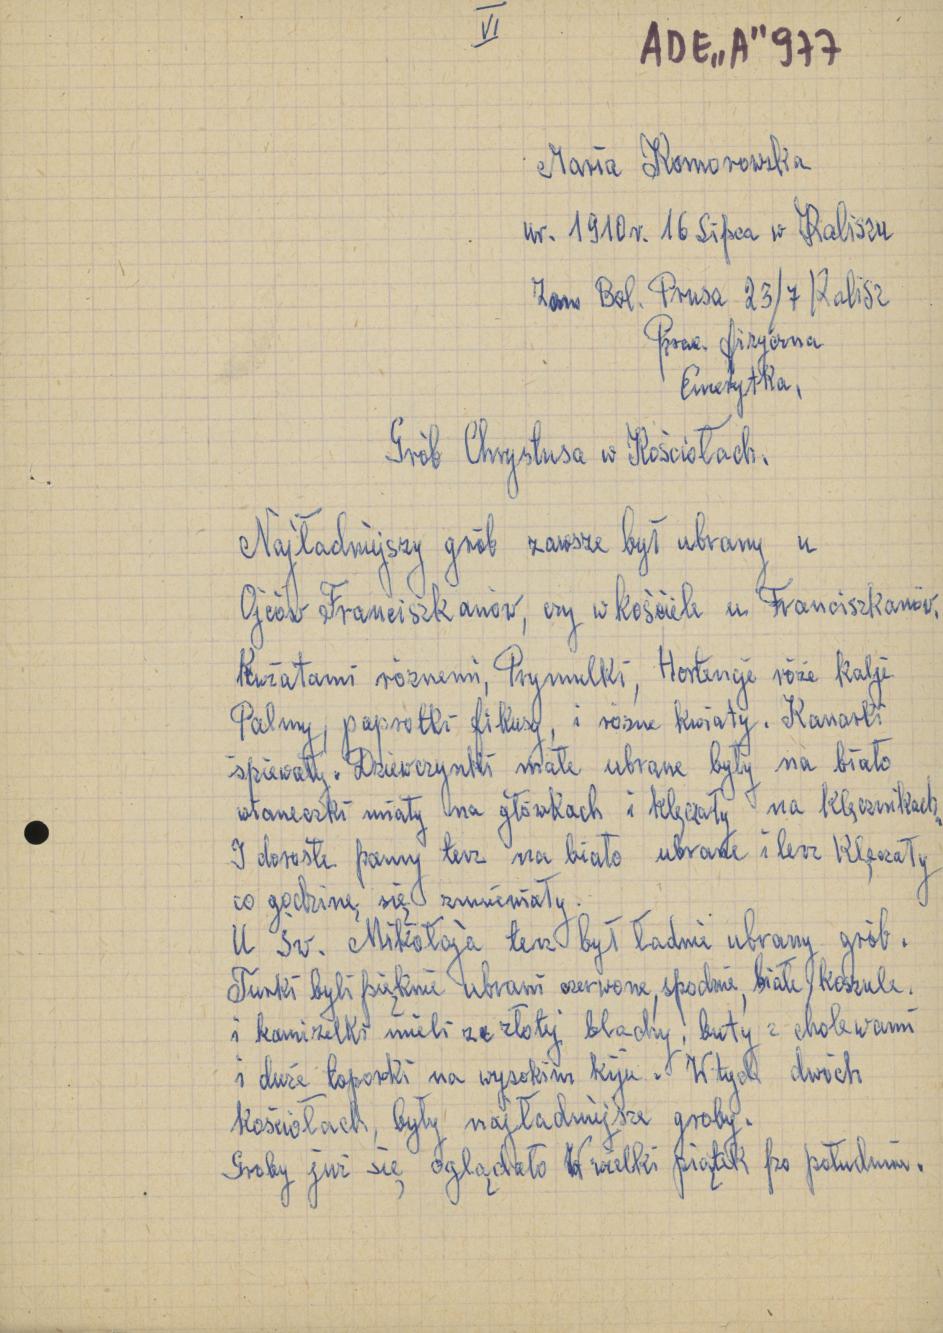 VI
ADE„A"977
Maria Komorowska
ur. 1910r. 16 Lipca w Kaliszu
Zam Bol. Prusa 23/7 Kalisz
Prac. fizyczna
Emerytka,
Grób Chrystusa w Kościołach.
Najładniejszy grób zawsze był ubrany u
Ojców Franciszkanów, czy w kościele u Franciszkanów.
Kwiatami róznemi, Prymulki, Hortencje róże kalje
Palmy, paprotki fikusy, i rózne kwiaty. Kanarki
śpiewały. Dziewczynki małe ubrane były na biało
wianeczki miały na główkach i klęczały na klęcznikach,
I dorosłe panny terz na biało ubrane i terz klęczały
co godzinę się zmnieniały.
U św. Mikołaja terz był ładnie ubrany grób.
Turki byli pięknie ubrani czerwone, spodnie, białe koszule.
i kamizelki mieli ze złotej blachy, buty z cholewami
i duże toporki na wysokim kiju. W tych dwóch
kościołach, były najładniejsze groby.
Groby już się oglądało W wielki piątek po południu.